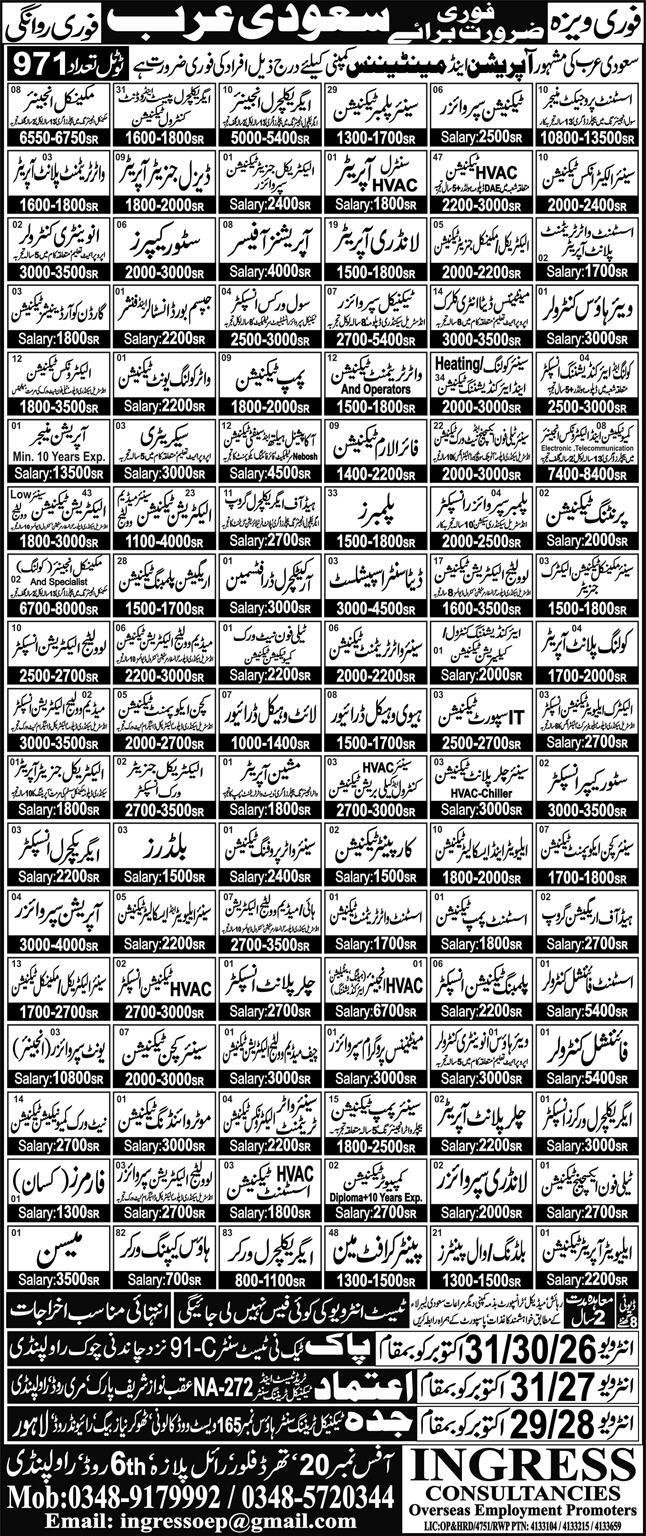 فوری ویزہ
فوری ضرورت برائے
سعودی عرب
فوری روانگی
سعودی عرب کی مشہور آپریشن اینڈ مینٹیننس کمپنی کیلئے درج ذیل افراد کی فوری ضرورت ہے
ٹوٹل تعداد 971
اسسٹنٹ پروجیکٹ منیجر 10
10800-13500SR
ٹیکنیشن سپروائزر 06
Salary:2500SR
سینئر پلمبر ٹیکنیشن 29
1300-1700SR
ایگریکلچرل انجینئر 10
5000-5400SR
1600-1800SR
مکینیکل انجینئر 08
6550-6750SR
سینئر الیکٹرانکس ٹیکنیشن 10
2000-2400SR
HVAC ٹیکنیشن 47
2200-3000SR
سنٹرل HVAC آپریٹر 01
Salary:1800SR
الیکٹریکل جنریٹر ٹیکنیشن سپروائزر 01
Salary:2400SR
ڈیزل جنریٹر آپریٹر 09
1800-2000SR
واٹر ٹریٹمنٹ پلانٹ آپریٹر 03
1600-1800SR
اسسٹنٹ واٹر ٹریٹمنٹ پلانٹ آپریٹر 02
Salary:1700SR
الیکٹریکل/مکینیکل جنریٹر ٹیکنیشن 05
2000-2200SR
لانڈری آپریٹر 19
1500-1800SR
آپریشنز آفیسر 08
Salary:4000SR
سٹور کیپرز 06
2000-3000SR
انوینٹری کنٹرولر 02
3000-3500SR
ویئر ہاؤس کنٹرولر 01
Salary:3000SR
مینٹیننس ڈیٹا انٹری کلرک 14
2000-3000SR
ٹیکنیکل سپروائزر 07
2700-5400SR
سول ورکس انسپکٹر 04
2500-3000SR
جپسم بورڈ انسٹالر اینڈ فنشر 01
Salary:2200SR
گارڈن کوآرڈینیٹر ٹیکنیشن 03
Salary:1800SR
کولنگ اینڈ ایئر کنڈیشننگ انسپکٹر 04
2500-3000SR
سینئر کولنگ/Heating اینڈ ایئر کنڈیشننگ ٹیکنیشن 34
2000-3000SR
واٹر ٹریٹمنٹ ٹیکنیشن 12
And Operators
1500-1800SR
پمپ ٹیکنیشن 09
1800-2000SR
واٹر کولنگ یونٹ ٹیکنیشن 01
Salary:2200SR
الیکٹرونکس ٹیکنیشن 12
1800-3500SR
کمیونیکیشن اینڈ الیکٹرونکس انجینئر 08
Electronic, Telecommunication
7400-8400SR
سینئر ٹیلی فون ایکسچینج نیٹ ورک ٹیکنیشن 22
2000-3000SR
فائر الارم ٹیکنیشن 09
1400-2200SR
آکوپیشنل ہیلتھ اینڈ سیفٹی ٹیکنیشن 12
Nebosh
Salary:4500SR
سیکریٹری 03
Salary:3000SR
آپریشن منیجر 01
Min. 10 Years Exp.
Salary:13500SR
پرنٹنگ ٹیکنیشن 02
Salary:2000SR
پلمبر سپروائزر انسپکٹر 04
2000-2500SR
پلمبرز 33
1500-1800SR
ہیڈ آف ایگریکلچرل گروپ 11
Salary:2700SR
سینئر میڈیم وولٹیج الیکٹریشن ٹیکنیشن 23
1100-4000SR
سینئر Low وولٹیج الیکٹریشن ٹیکنیشن 43
1800-3000SR
سینئر مکینیکل ٹیکنیشن الیکٹرک جنریٹر 03
1500-1800SR
لو وولٹیج الیکٹریشن ٹیکنیشن 17
1600-3500SR
ڈیٹا سنٹر اسپیشلسٹ 03
3000-4500SR
آرکیٹیکچرل ڈرافٹسمین 01
Salary:3000SR
اریگیشن پلمبنگ ٹیکنیشن 28
1500-1700SR
مکینیکل انجینئر (کولنگ) 02
And Specialist
6700-8000SR
کولنگ پلانٹ آپریٹر 04
1700-2000SR
ایئر کنڈیشننگ کنٹرول/کیلیبریشن ٹیکنیشن 01
Salary:2000SR
سینئر واٹر ٹریٹمنٹ ٹیکنیشن 06
2000-2200SR
ٹیلی فون نیٹ ورک کمیونیکیشن ٹیکنیشن 01
Salary:2200SR
میڈیم وولٹیج الیکٹریشن ٹیکنیشن 06
2200-3000SR
لو وولٹیج الیکٹریشن انسپکٹر 10
2500-2700SR
الیکٹرک ایلیویٹر ٹیکنیشن انسپکٹر 01
Salary:2700SR
IT سپورٹ ٹیکنیشن 03
2500-2700SR
ہیوی وہیکل ڈرائیور 08
1500-1700SR
لائٹ وہیکل ڈرائیور 07
1000-1400SR
کچن ایکوپمنٹ ٹیکنیشن 05
2000-2700SR
میڈیم وولٹیج الیکٹریشن انسپکٹر 02
3000-3500SR
سٹور کیپر انسپکٹر 02
3000-3500SR
سینئر چلر پلانٹ ٹیکنیشن 03
HVAC-Chiller
Salary:3000SR
سینئر HVAC کنٹرول/کیلی بریشن ٹیکنیشن 03
2700-3000SR
مشین آپریٹر 01
Salary:1800SR
الیکٹریکل جنریٹر ورک انسپکٹر 02
2700-3500SR
الیکٹریکل جنریٹر آپریٹر 01
Salary:1800SR
سینئر کچن ایکوپمنٹ ٹیکنیشن 07
1700-1800SR
ایلیویٹر اینڈ ایسکالیٹر ٹیکنیشن 10
1800-2000SR
کارپینٹر ٹیکنیشن 02
Salary:2000SR
سینئر واٹر پروفنگ ٹیکنیشن 01
Salary:2400SR
بلڈرز 03
Salary:1500SR
ایگریکلچرل انسپکٹر 03
Salary:2200SR
ہیڈ آف اریگیشن گروپ 02
Salary:2700SR
اسسٹنٹ پمپ ٹیکنیشن 01
Salary:1800SR
اسسٹنٹ واٹر ٹریٹمنٹ ٹیکنیشن 01
Salary:1700SR
ہائی/میڈیم وولٹیج الیکٹریشن 07
2700-3500SR
سینئر ایلیویٹر اینڈ ایسکالیٹر ٹیکنیشن 05
Salary:2200SR
آپریشن سپروائزر 04
3000-4000SR
اسسٹنٹ فائنینشل کنٹرولر 01
Salary:5400SR
پلمبنگ ٹیکنیشن انسپکٹر 06
Salary:2200SR
HVAC انجینئر 01
Salary:6700SR
چلر پلانٹ انسپکٹر 01
Salary:2700SR
HVAC ٹیکنیشن انسپکٹر 02
2700-3000SR
سینئر الیکٹریکل/مکینیکل ٹیکنیشن 13
1700-2700SR
فائنینشل کنٹرولر 01
Salary:5400SR
ویئر ہاؤس انوینٹری کنٹرولر 01
Salary:3000SR
مینٹیننس پروگرام سپروائزر 01
Salary:3000SR
چیف میڈیم وولٹیج الیکٹریشن ٹیکنیشن 01
Salary:3000SR
سینئر کچن ٹیکنیشن 07
2000-3000SR
یونٹ سپروائزر (انجینئر) 03
Salary:10800SR
ایگریکلچرل ورکرز انسپکٹر 01
Salary:3000SR
چلر پلانٹ آپریٹر 02
Salary:2700SR
سینئر پمپ ٹیکنیشن 15
1800-2500SR
سینئر واٹر ٹریٹمنٹ الیکٹرونکس ٹیکنیشن 04
Salary:2200SR
موٹر وائنڈنگ ٹیکنیشن 01
Salary:3000SR
نیٹ ورک کمیونیکیشن ٹیکنیشن 14
Salary:2700SR
ٹیلی فون ایکسچینج ٹیکنیشن 01
Salary:2700SR
لانڈری سپروائزر 02
Salary:2000SR
کمپیوٹر ٹیکنیشن 02
Diploma+10 Years Exp.
Salary:3000SR
HVAC اسسٹنٹ ٹیکنیشن 03
Salary:1800SR
لو وولٹیج الیکٹریشن سپروائزر 03
Salary:2700SR
فارمرز (کسان) 01
Salary:1300SR
ایلیویٹر آپریٹر ٹیکنیشن 01
Salary:2200SR
بلڈنگ/وال پینٹرز 21
1300-1500SR
پینٹر کرافٹ مین 48
1300-1500SR
ایگریکلچرل ورکر 83
800-1100SR
ہاؤس کیپنگ ورکر 82
Salary:700SR
میسن 01
Salary:3500SR
ڈیوٹی 8 گھنٹے
معاہدہ مدت 2 سال
رہائش/میڈیکل/ٹرانسپورٹ بذمہ کمپنی دیگر مراعات سعودی لیبر لاء کے مطابق خواہشمند کاغذات/پاسپورٹ کے ہمراہ رابطہ کریں
ٹیسٹ انٹرویو کی کوئی فیس نہیں لی جائیگی
انتہائی مناسب اخراجات
انٹرویو 31/30/26 اکتوبر کو بمقام پاک ٹیک نی ٹیسٹ سنٹر 91-C نزد چاندنی چوک راولپنڈی
انٹرویو 31/27 اکتوبر کو بمقام اعتماد ٹریڈ ٹیسٹ اینڈ ٹیکنیکل ٹریننگ سنٹر NA-272 عقب نواز شریف پارک، مری روڈ راولپنڈی
انٹرویو 29/28 اکتوبر کو بمقام جدہ ٹیکنیکل ٹریننگ سنٹر ہاؤس نمبر 165 ویسٹ ووڈ کالونی ٹھوکر نیاز بیگ رائیونڈ روڈ، لاہور
INGRESS
CONSULTANCIES
Overseas Employment Promoters
LIC:OP&HRD/4751/RWP PTN: 4133104 / 4133215 / 4133659
آفس نمبر 20، تھرڈ فلور، رائل پلازہ، 6th روڈ، راولپنڈی
Mob:0348-9179992 / 0348-5720344
Email: ingressoep@gmail.com